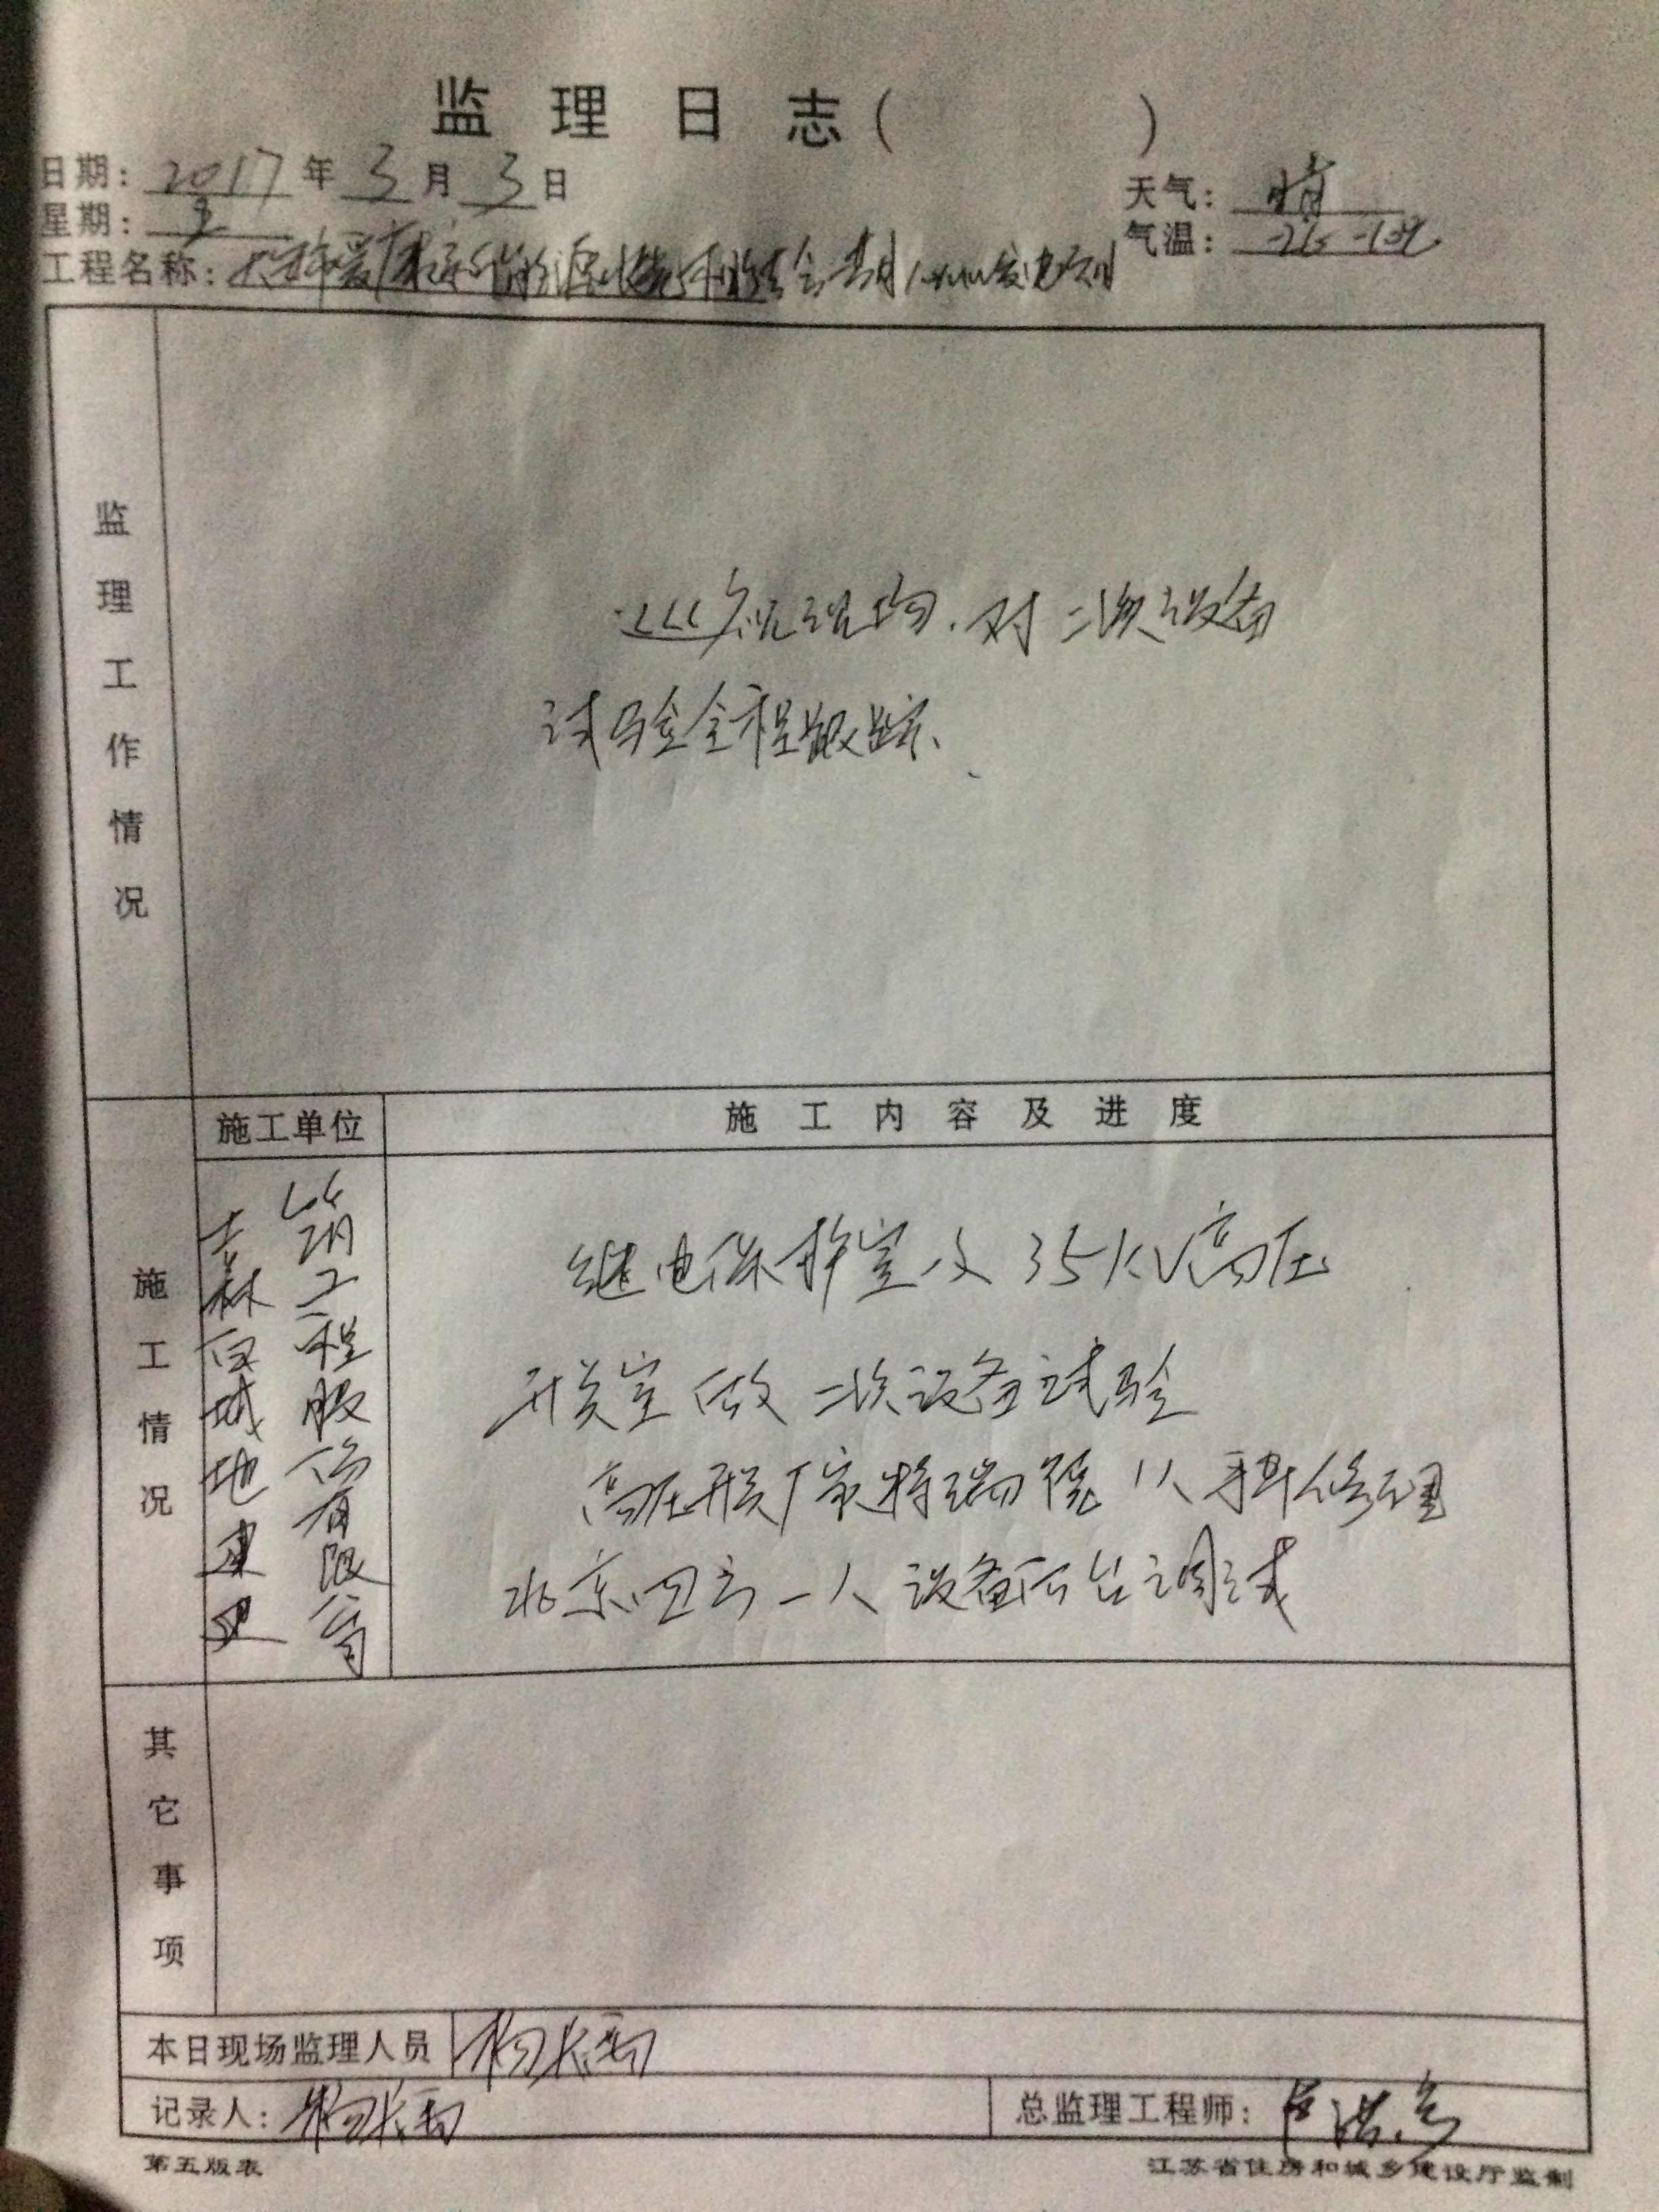 监理日志(　　　)
日期：2017年3月3日
天气：晴
星期：五
气温：
工程名称：
监理工作情况
巡视现场.对二次设备
试验全程跟踪、
施工情况
施工单位
施工内容及进度
吉林白城地建建
筑工程服份有限公司
继电保护室及35KV高压
开关室做二次设备试验
高压开关厂家特瑞德 1人 修理
北京四方一人设备后台调试
其它事项
本日现场监理人员 杨长雨
记录人：杨长雨
总监理工程师：
第五版表
江苏省住房和城乡建设厅监制